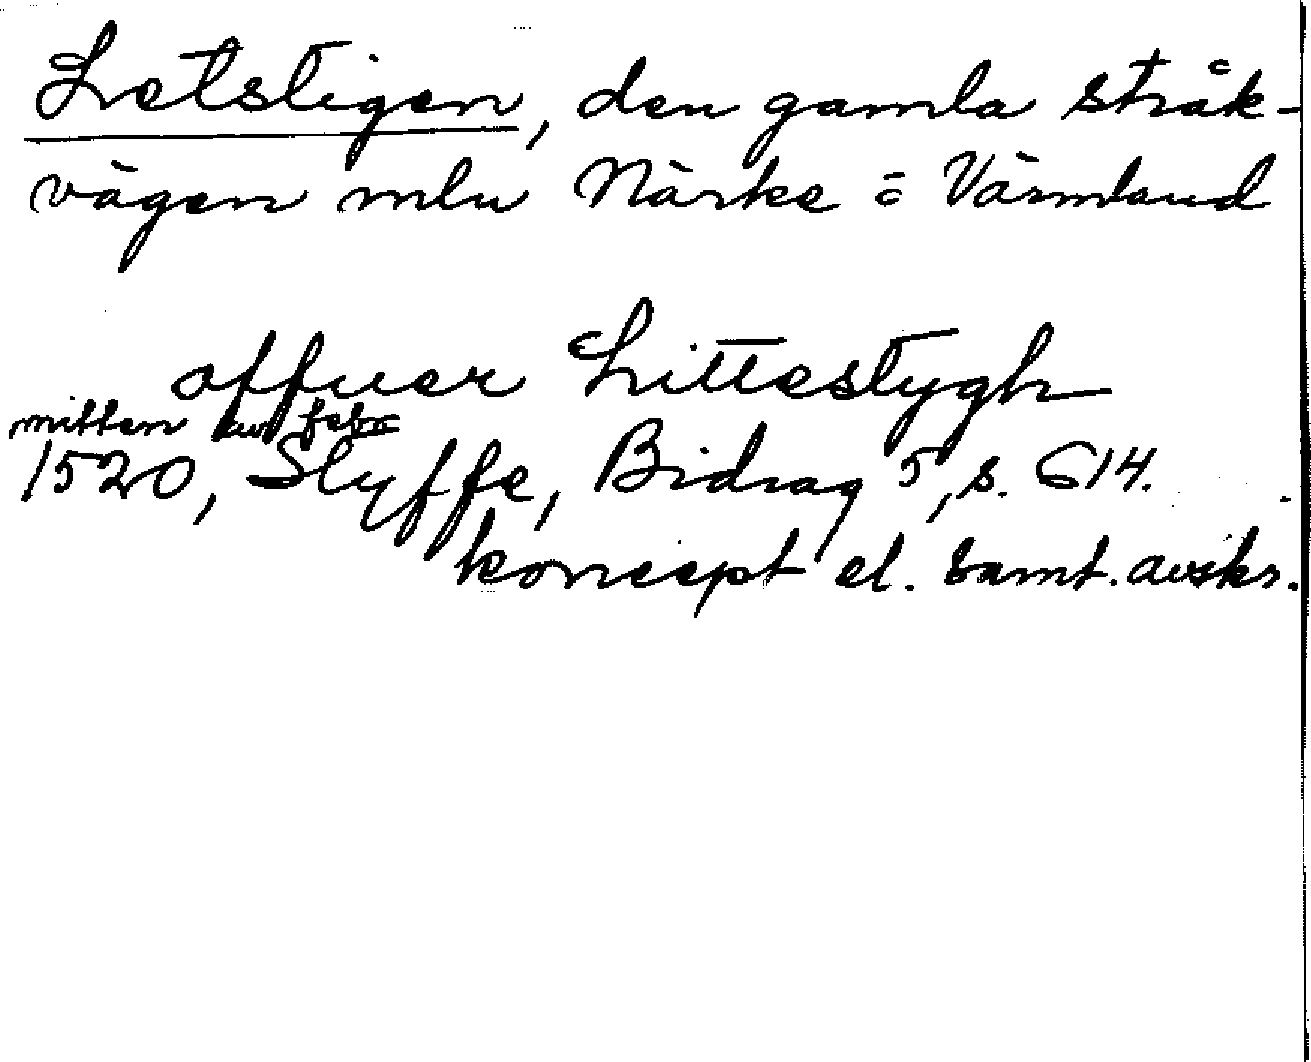 Letstigen, den gamla stråk-
vägen mln Närke o Värmland
offuer Littestygh
mitten av febr
1520, Styffe, Bidrag 5, s. 614.
koncept el. samt. avskr.